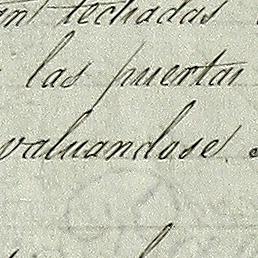 techadas
las puertas
valuandose